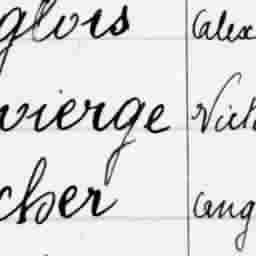 glois Alex
vierge Vict
cher Aug